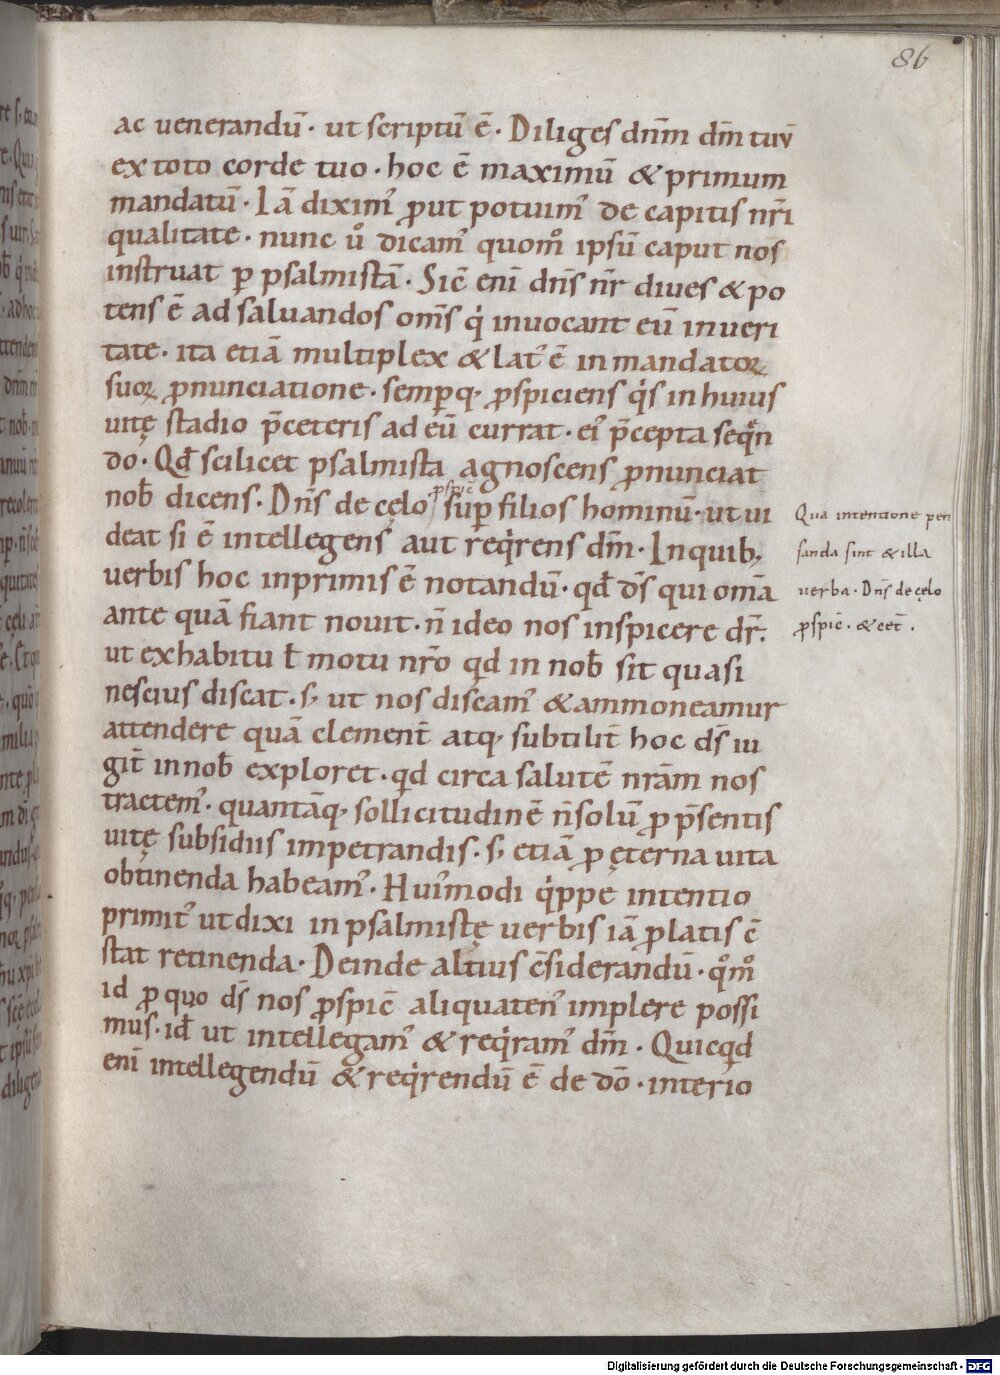 86
ac uenerandū· ut scriptū ē· Diliges dn̄m dm̄ tuū
ex toto corde tuo· hoc ē maximū & primum
mandatū· Iā diximꝰ ꝓut potuimꝰ de capitis nr̄i
qualitate· nunc uͦ dicamꝰ quomͦ ipsū caput nos
instruat ꝑ psalmistā· Sic̄ eni̅ dn̄s nr̄ diues & po
tens ē ad saluandos om̄s qͥ inuocant eū in ueri
tate· ita etiā multiplex & latꝰ ē in mandatoꝝ
suoꝝ ꝓnunciatione· semꝑq; ꝓspiciens qͥs in huius
uitę stadio p̄ceteris ad eū currat· eiꝰ p̄cepta seqͣn
do· Qd̄ scilicet psalmista agnoscens ꝓnunciat
nob̄ dicens· Dn̄s de cęlo ꝓspic̄ suꝑ filios hominū· ut ui
deat si ē intellegens aut reqͥrens dm̄· In quib;
uerbis hoc inprimis ē notandū· qd̄ ds̄ qui om̄a
ante quā fiant nouit· n̄ ideo nos inspicere dr̄·
ut ex habitu ł motu nr̄o qd in nob̄ sit quasi
nescius discat· s; ut nos discamꝰ & ammoneamur
attendere quā clement̄ atq; subtilit̄ hoc ds̄ iu
git̄ in nob̄ exploret· qd circa salutē nrām nos
tractemꝰ· quantāq; sollicitudinē n̄ solū ꝓ p̄sentis
uitę subsidiis impetrandis· s; etiā ꝓ ęterna uita
obtinenda habeamꝰ· Huiꝰmodi qͥppe intentio
primitꝰ ut dixi in psalmistę uerbis iā ꝓlatis c̄
stat retinenda· Deinde altius c̄siderandū· qͦmͦ
id ꝓ quo ds̄ nos ꝓspic̄ aliquatenꝰ implere possi
mus· id̄ ut intellegamꝰ & reqͥramꝰ dm̄· Quicqd
eni̅ intellegendū & reqͥrendū ē de dō· interio
Qua intentione pen
sanda sint & illa
uerba· Dn̄s de cęlo
ꝓspic̄· & cet̄·
Digitalisierung gefördert durch die Deutsche Forschungsgemeinschaft - DFG